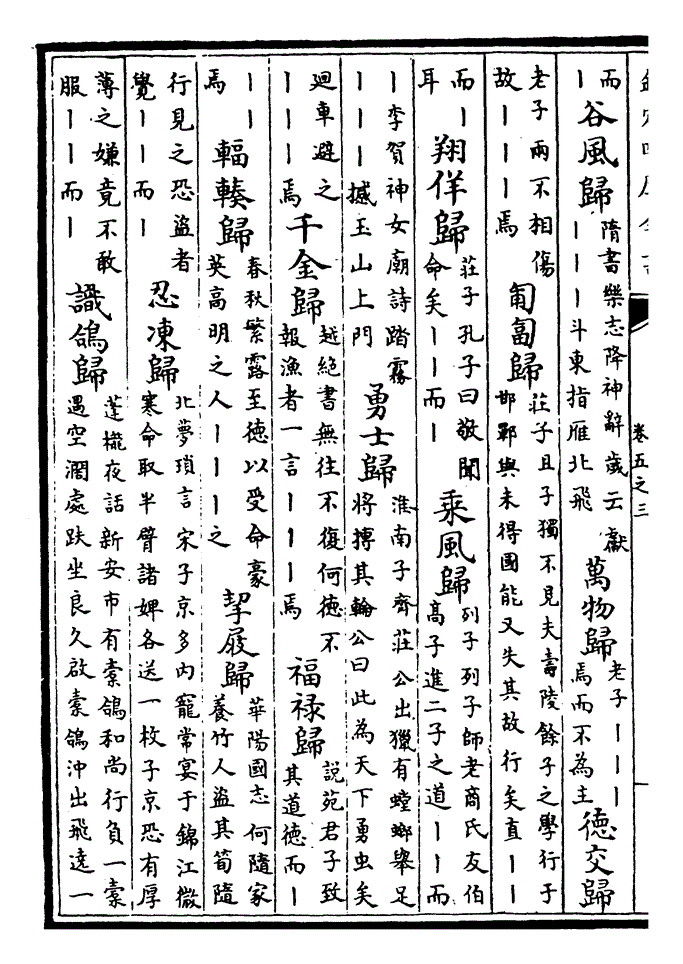 欽定四庫全書 卷五之三
而｜谷風歸隋書樂志降神辭歲云獻｜｜｜斗東指雁北飛萬物歸老子｜｜｜焉而不為主德交歸
老子兩不相傷故｜｜｜焉匍匐歸莊子且子獨不見夫壽陵餘子之學行于邯鄲與未得國能又失其故行矣直｜｜
而｜耳翔佯歸莊子孔子曰敬聞命矣｜｜而｜乘風歸列子列子師老商氏友伯高子進二子之道｜｜而
｜李賀神女廟詩踏霧｜｜｜撼玉山上門勇士歸淮南子齊莊公出獵有螳螂舉足將搏其輪公曰此為天下勇虫矣
迴車避之｜｜｜焉千金歸越絕書無往不復何德不報漁者一言｜｜｜焉福祿歸說苑君子致其道德而｜
｜｜焉輻輳歸春秋繁露至德以受命豪英高明之人｜｜｜之挈履歸華陽國志何隨家養竹人盜其筍隨
行見之恐盜者覺｜｜而｜忍凍歸北夢瑣言宋子京多內寵常宴于錦江微寒命取半臂諸婢各送一枚子京恐有厚
薄之嫌竟不敢服｜｜而｜識鴿歸蓬櫳夜話新安市有橐鴿和尚行負一橐遇空濶處趺坐良久啟橐鴿沖出飛遶一